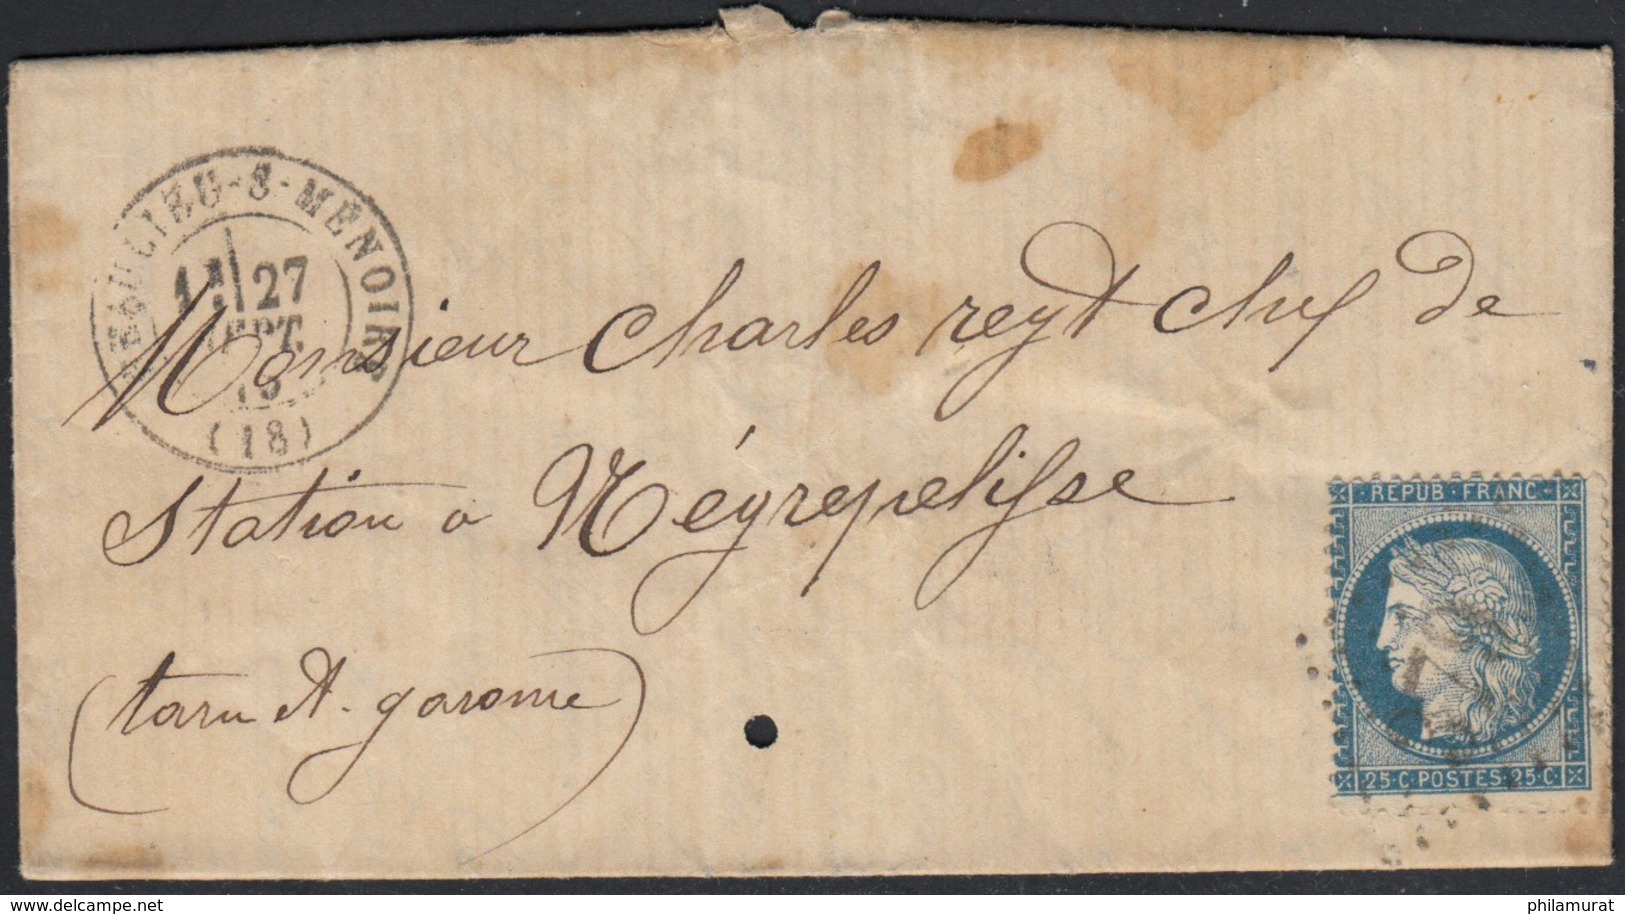 BEAULIEU-S-MENOIRE
27
SEPT.
(18)
Monsieur Charles reyt chef de
Station a Négrepelisse
(tarn et garonne)
REPUB·FRANC·
25·C·POSTES·25·C·
delcampe.net
philamurat